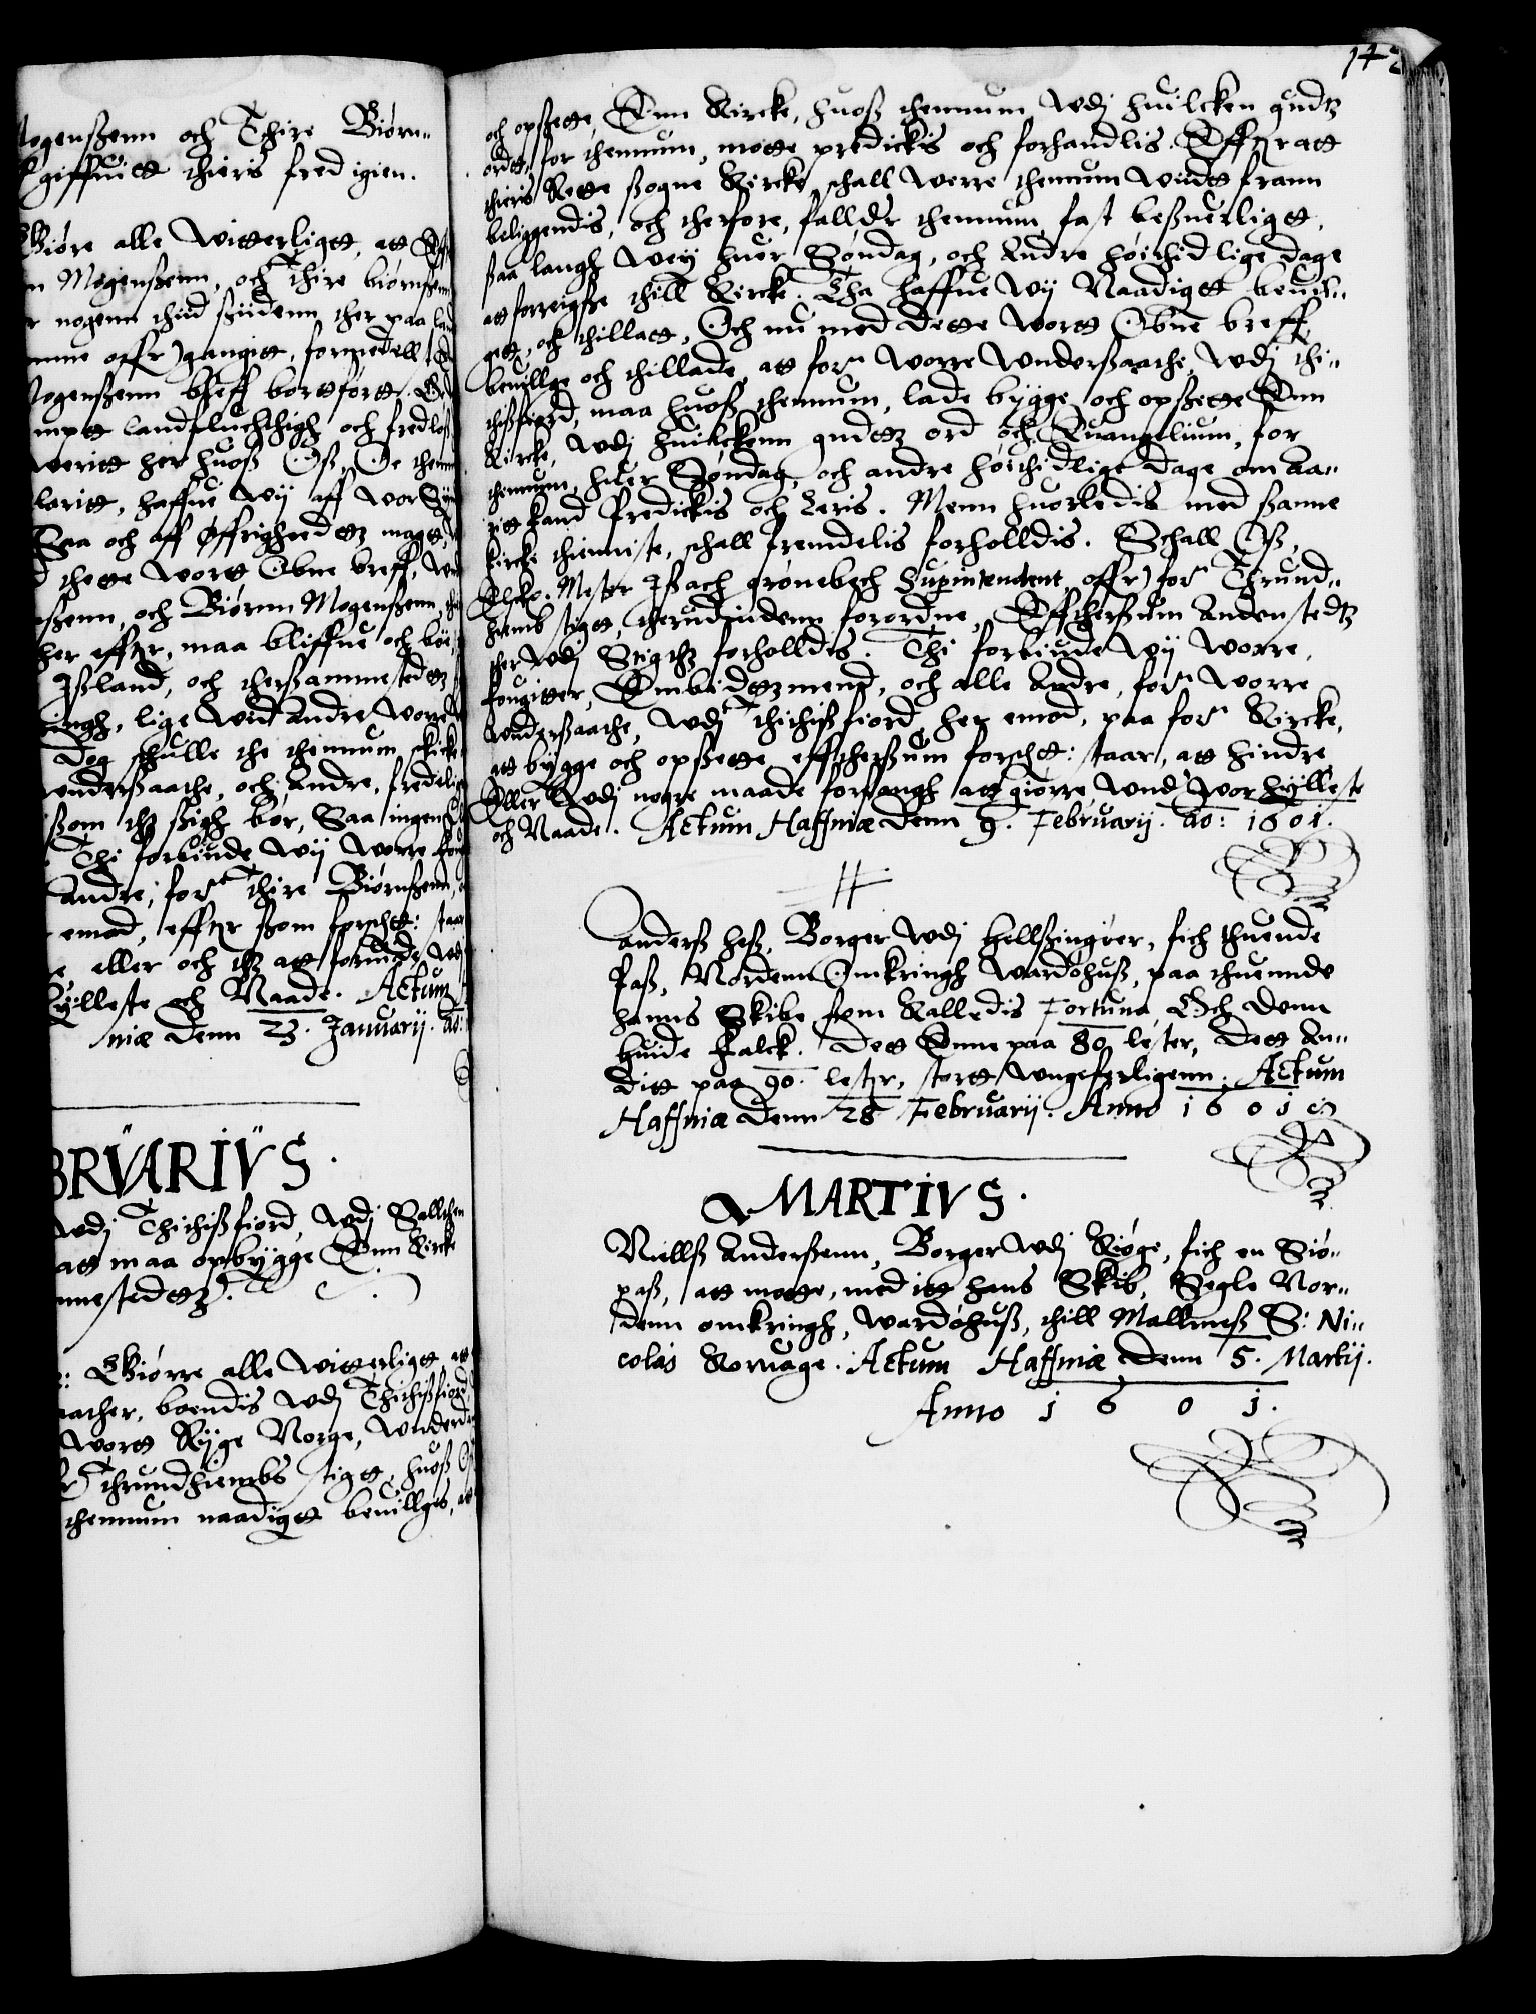 logenßenn och Thire Biørn-
giffuitt thieris fred igien.
Giøre alle witterligtt, att
Mogenßenn, och Thire biørnßen
nogenn thid ßiidenn, ther paa
mme offr) gangitt, formedellst
Mogenßenn bleff bortførtt.
mptt landflüchthigh och fredløs
weritt her huoß Oß, Oc them
laritt, haffue wij aff wor
Saa och aff øffrigheedtz magtt,
thette wortt Obne breff,
ßenn, och Biørnn Mogenßenn,
her efftr, maa bliffue och boe,
Ißland, och therßammestedtz
ingh, lige wid andre worre
Dog schulle the thennum skicke
wnderßaathe, och Andre, fredelig
ßom thz ßigh bør, Saa ingen
Thi forbiude wij worre
Andre, forne Thire Biørnßenn,
emod, efftr ßom forschtt: staar
eller och thz att forringe, wdj
hylleste och Naade. Actum
niæ Denn 23. Januarij. ao:
BRVARIVS.
wdj Thichißfiord, wdj Sallthen
att maa opbygge Enn Kircke
mestedttz.
: Giørre alle witterligtt, att
aather, boendis wdj Thichißfiord
wortt Ryge Norge, wnder
Thrundhiembs stigtt, huoß
thennum naadigtt beuillges, att
142
och opßette, Enn Kircke, huoß thennum wdj huilcken gudtz
ordtt, for thennum, motte predickis och forhandlis. Efftr att
thieris Rette ßogne Kircke, schall werre thennum widtt frann
beliggendis, och therfore, falldr thennum, fast beßuerligtt,
ßaa langh wey huer Søndag, och Andre høithidlige dage
att forreigße thill Kircke. Tha haffue wij Naadigtt beuil-
gtt, och thilladtt, Och nu med dette wortt Obne breff,
beuillge och thillade, att forne worre wnderßaathe, wdj Thi-
chißfiord, maa huoß thennum, lade bygge, och opßette Enn
Kircke, wdj huilckenn gudttz ord och Euangelium, for
thennum, huer Søndag, och andre høithidlige dage, om Aa-
ritt kand predickis och leris. Menn huorledis med ßamme
kircke thienniste, schall fremdelis forholldis. Schall Oß,
Elsk: Mester Ißach grønebech Supintendent offr) forne Thrund-
hiemb stigtt, therudindenn forordne, Effterßum Andenstedtz
ther wdj Stigthz forholldis. Thi forbiude wij worre,
fougitter, Embidttzmend, och alle Andre, forne worre
wnderßaathe, wdj Thichißfiord, her emod, paa forne Kircke,
att bygge och opßette, effterßum forschtt: staar, att hindre
Eller wdj nogre maade forfangh att giørre wnd: wor hylleste
och Naade. Actum Haffniæ denn 9. Februarij. ao: 1601.
Anderß heß, Borger wdj Hellßingøer, fich thuende
Paß, Nordenn Omkringh Wardøhuß, paa thuennde
hanns Skibe, som Kalledis Fortuna, Och denn
Huide Falck. Dett Enne paa 80 lester, Dett An-
ditt paa 90. lestr, stortt wngeferligenn. Actum
Haffniæ Denn 28 Februarij. Anno 1601
MARTIVS.
Niellß Anderßenn, Borger wdj Kiøge, fich en Siø-
paß, att motte, med itt hans Skib, Segle Nor-
denn omkringh, wardøhuß, thill Mallmeß S: Ni-
colas Kornage. Actum Haffniæ denn 5. Martij.
Anno 1601.